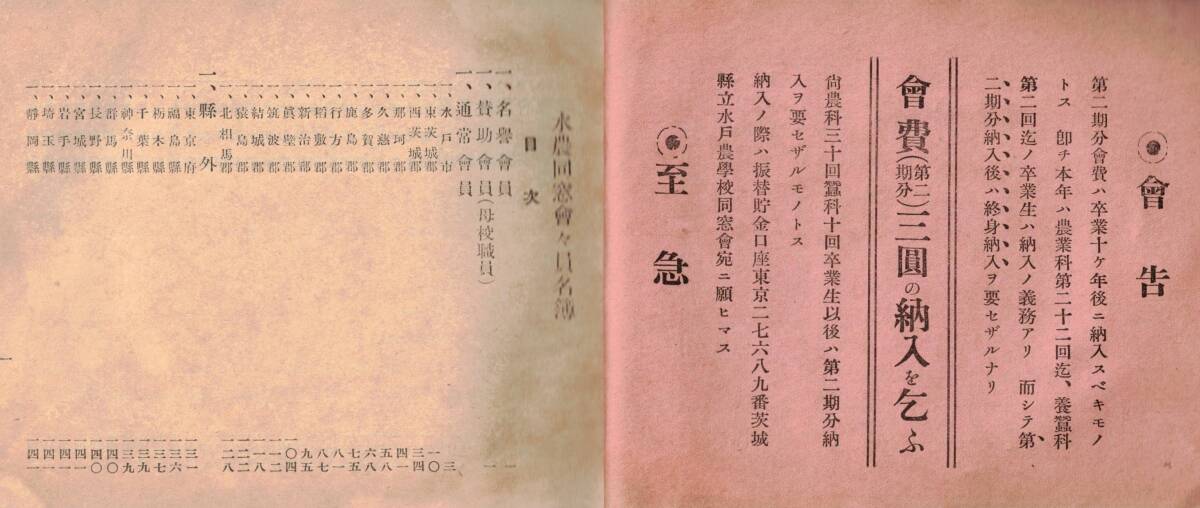 會告
第二期分會費ハ卒業十ケ年後ニ納入スベキモノ
トス 卽チ本年ハ農業科第二十二回迄、養蠶科
第二回迄ノ卒業生ハ納入ノ義務アリ 而シテ第
二期分納入後ハ終身納入ヲ要セザルナリ
會費(第二期分)三圓の納入を乞ふ
尙農科三十回蠶科十回卒業生以後ハ第二期分納
入ヲ要セザルモノトス
納入ノ際ハ振替貯金口座東京二七六八九番茨城
縣立水戶農學校同窓會宛ニ願ヒマス
至急
水農同窓會々員名簿
目次
一、名譽會員 一
一、賛助會員(母校職員) 一
一、通常會員
一、水戶市 三
一、東茨城郡 一〇
一、西茨城郡 三四
一、那珂郡 四一
一、久慈郡 五八
一、多賀郡 六八
一、鹿島郡 七五
一、行方郡 八一
一、稻敷郡 八七
一、新治郡 九五
一、眞壁郡 一〇四
一、筑波郡 一一二
一、結城郡 一一八
一、猿島郡 一二二
一、北相馬郡 一二八
一、縣外
一、東京府 一三一
一、福島縣 一三六
一、栃木縣 一三七
一、千葉縣 一三九
一、神奈川縣 一三九
一、群馬縣 一四〇
一、長野縣 一四〇
一、宮城縣 一四一
一、岩手縣 一四一
一、埼玉縣 一四一
一、靜岡縣 一四一
一